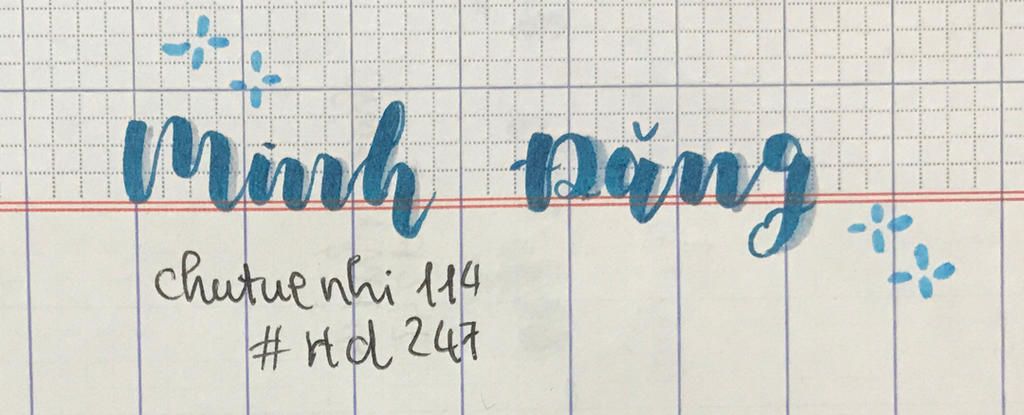 Minh Đăng
chutuenhi 114
# Hd 247